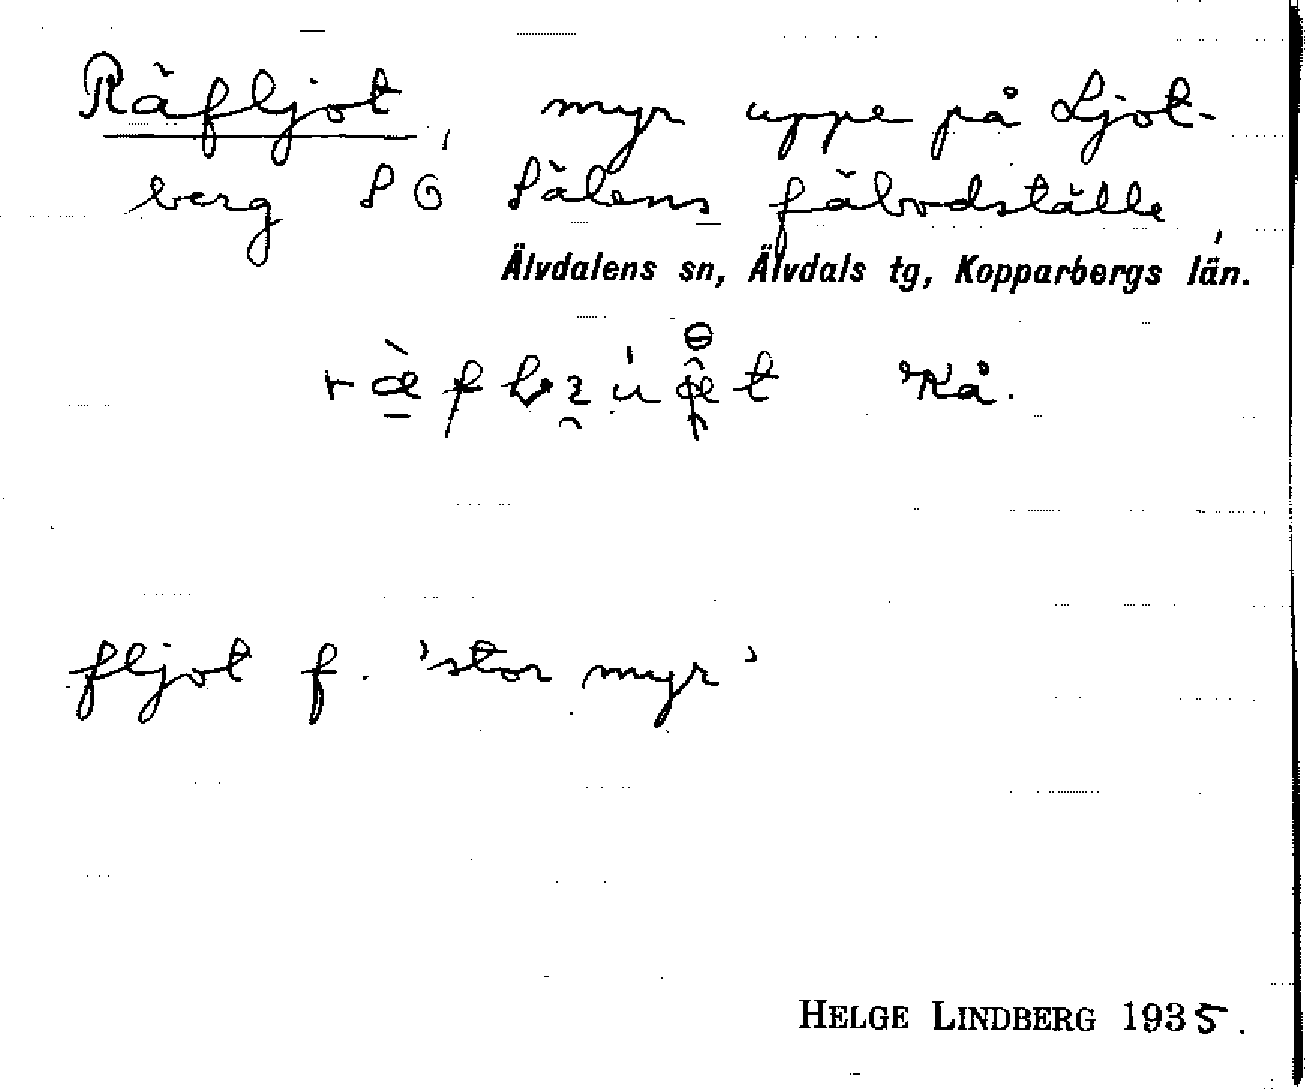 Räfljot, myr uppe på Ljot-
berg SÖ Sälens fäbodställe,
Älvdalens sn, Älvdals tg, Kopparbergs län.
Kå.
fljot f. 'stor myr'
HELGE LINDBERG 1935.